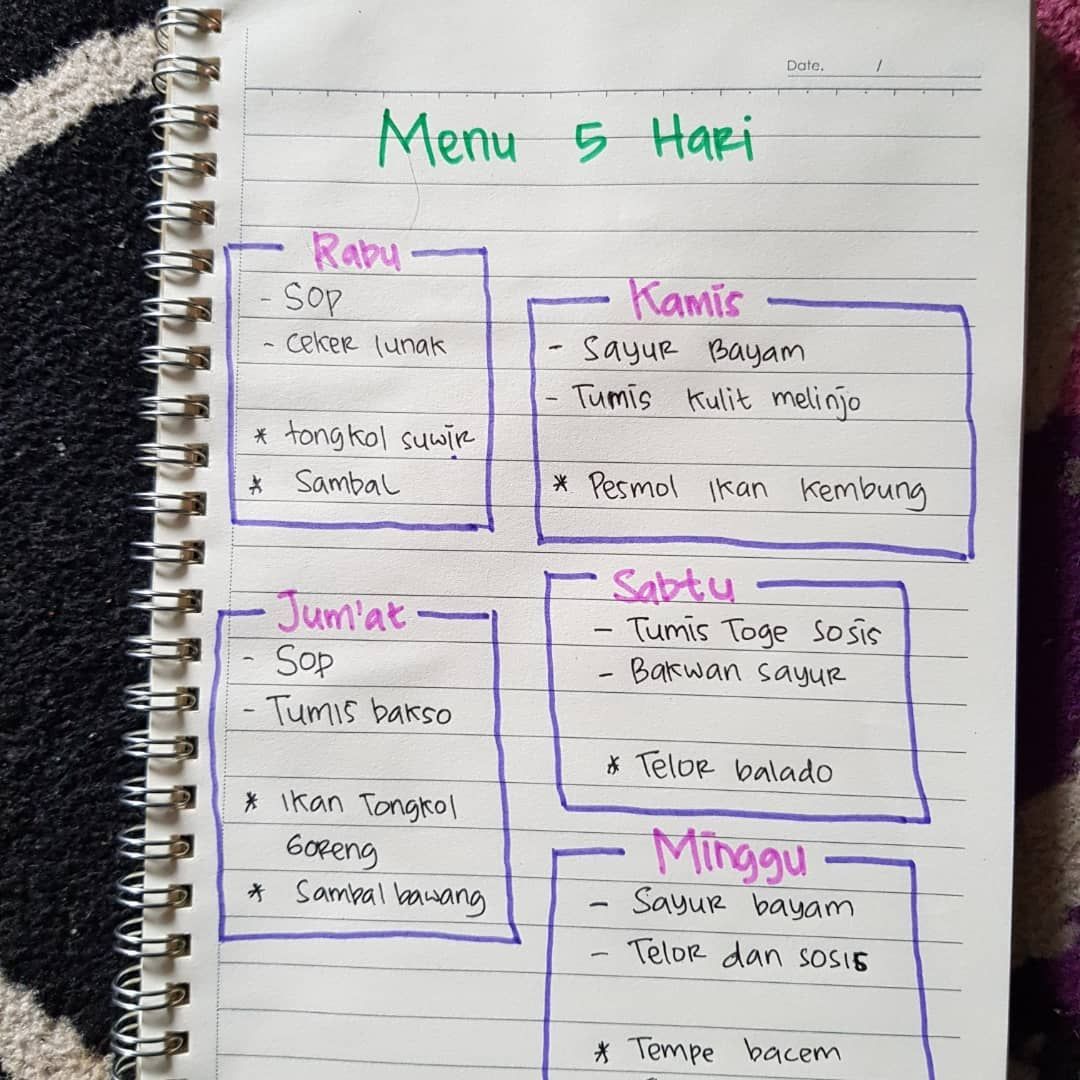 Date. /
Menu 5 Hari
Rabu
- Sop
- Ceker lunak
* tongkol suwir
* Sambal
Kamis
- Sayur Bayam
- Tumis Kulit melinjo
* Pesmol Ikan Kembung
Jum'at
- Sop
- Tumis bakso
* Ikan Tongkol
Goreng
* Sambal bawang
Sabtu
- Tumis Toge Sosis
- Bakwan sayur
* Telor balado
Minggu
- Sayur bayam
- Telor dan sosis
* Tempe bacem